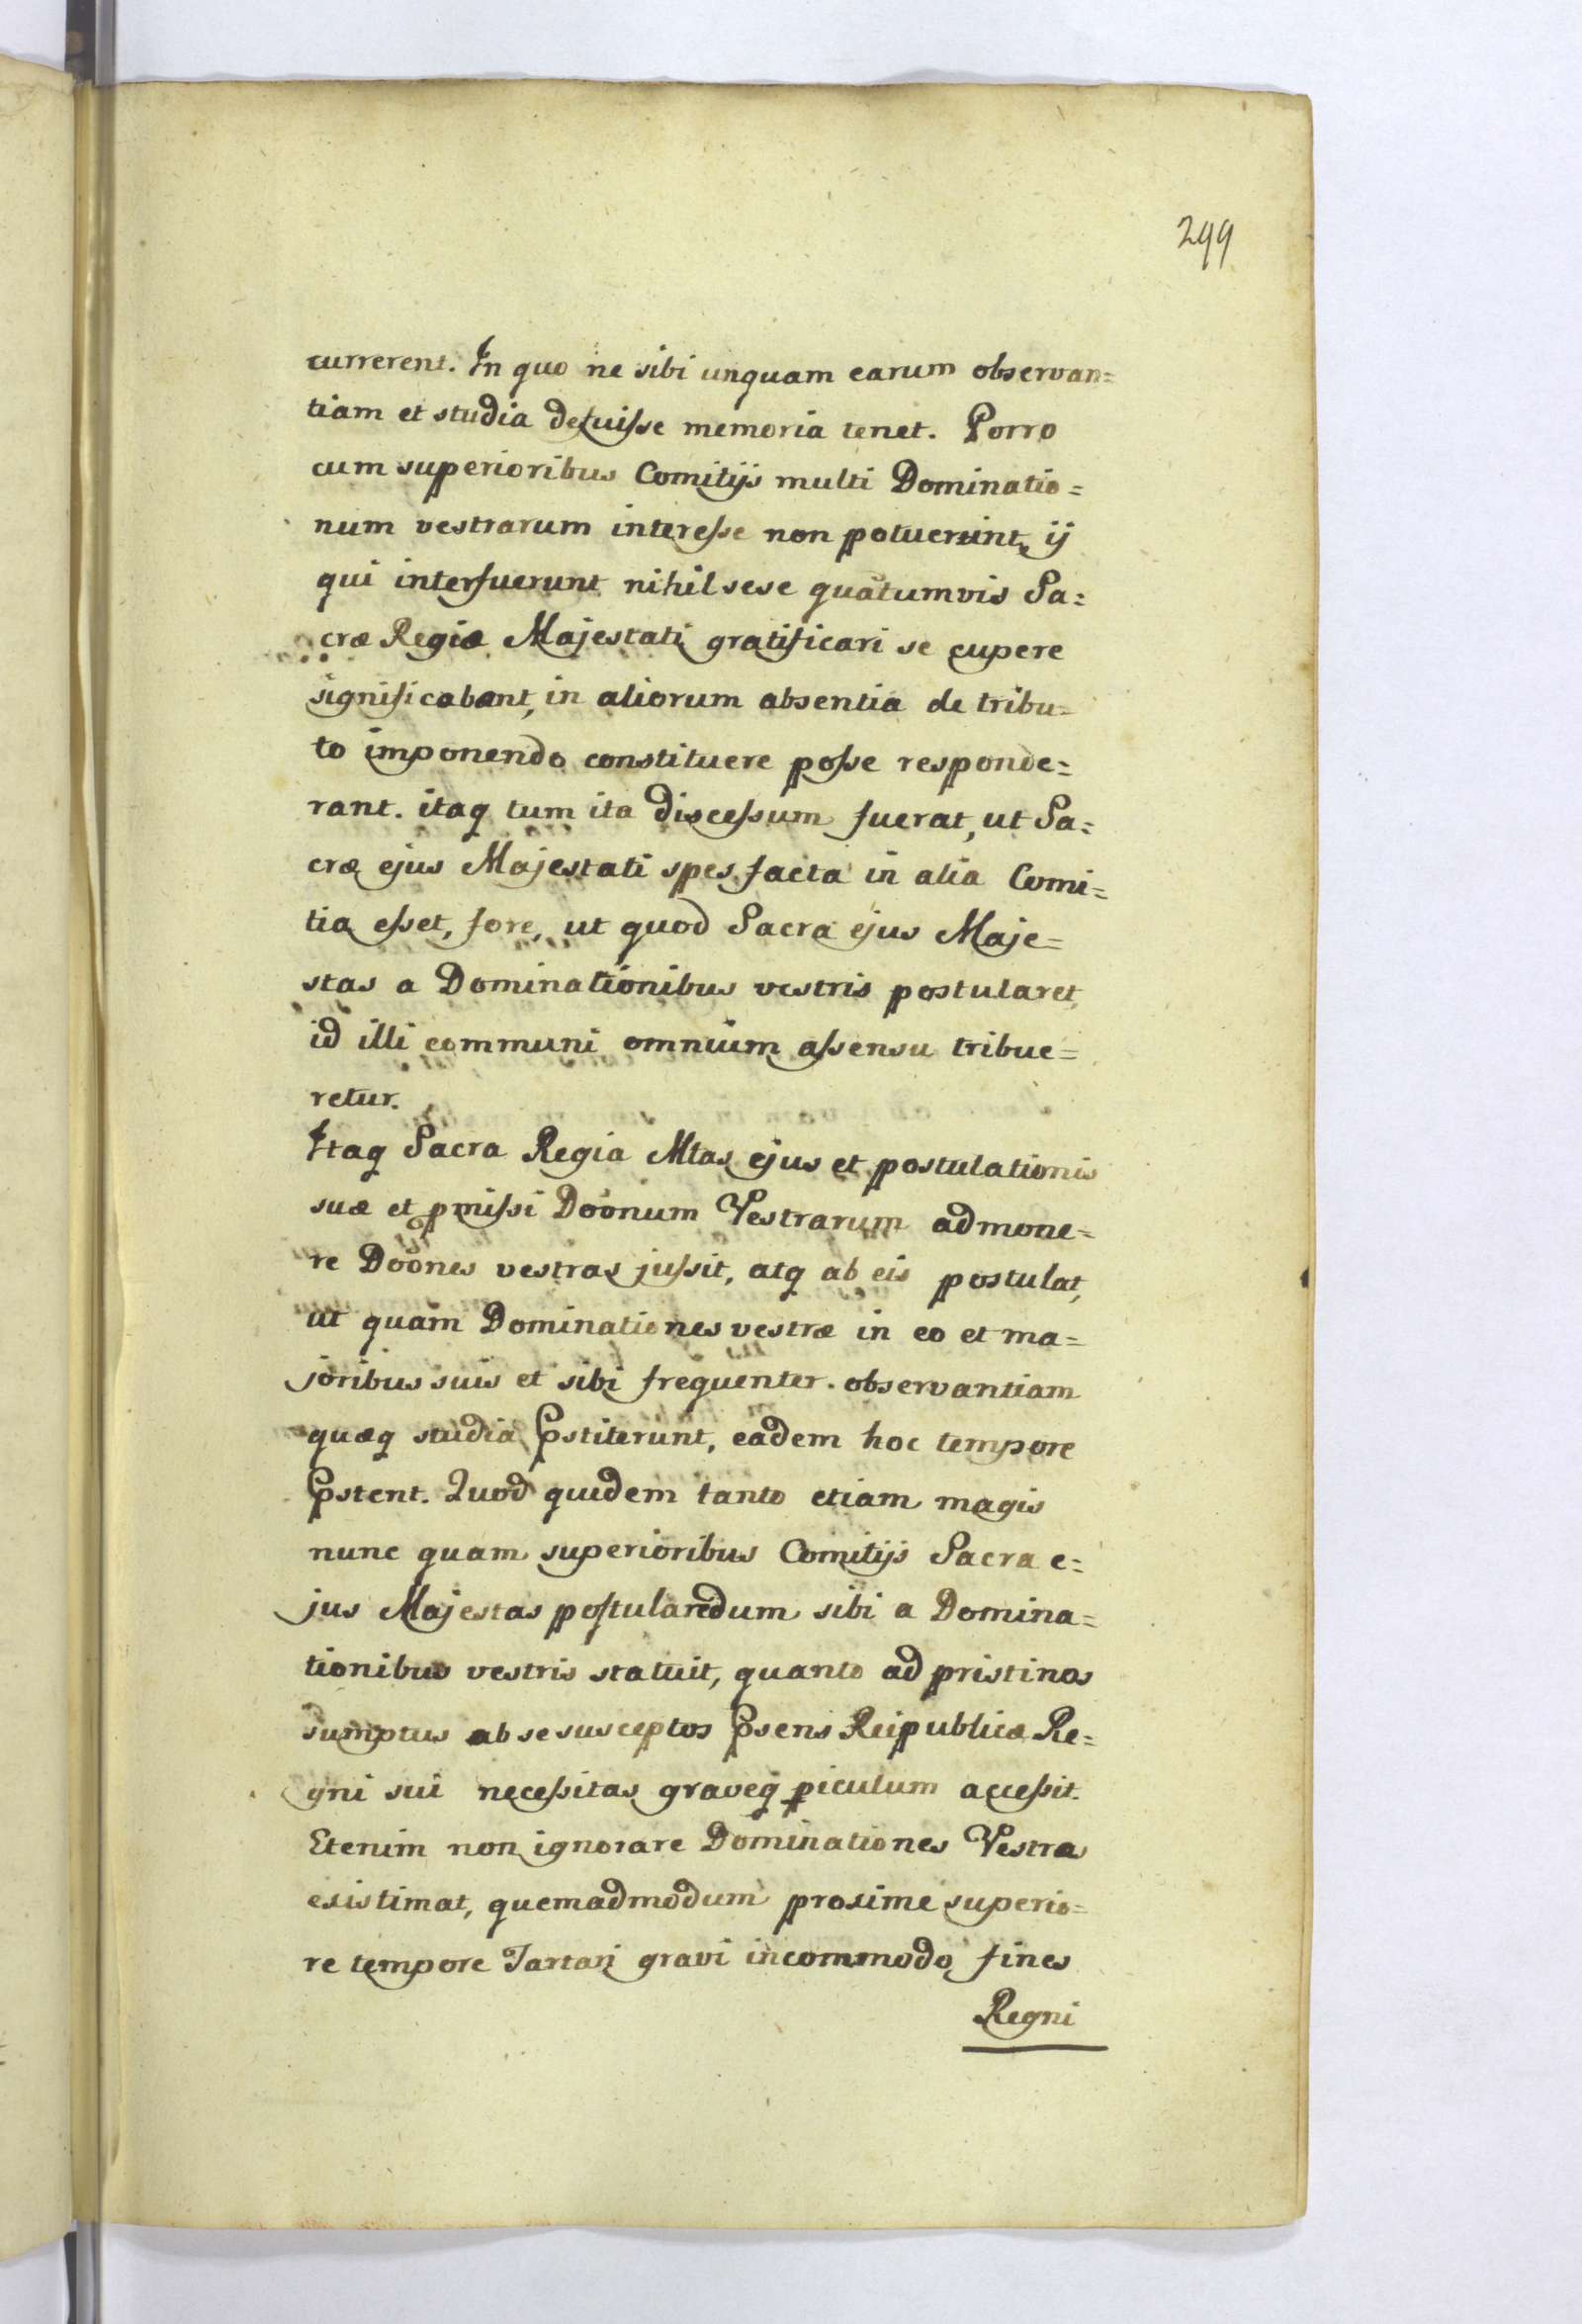 299
currerent. In quo ne sibi unquam earum observan=
tiam et studia defuisse memoria tenet. Porro
cum superioribus Comitijs multi Dominatio=
num vestrarum interesse non potuerint, ij
qui interfuerunt nihil sese quãtumvis Sa=
cræ Regiæ Majestati gratificari se cupere
significabant, in aliorum absentia de tribu=
to imponendo constituere posse responde=
rant. itaq tum ita discessum fuerat, ut Sa=
cræ ejus Majestati spes facta in alia Comi=
tia esset, fore, ut quod Sacra ejus Maje=
stas a Dominationibus vestris postularet,
id illi communi omnium assensu tribue=
retur.
Itaq Sacra Regia Mtas ejus et postulationis
suæ et pmissi Doonum Vestrarum admone=
re Doones vestras jussit, atq ab eis postulat,
ut quam Dominationes vestræ in eo et ma=
joribus suis et sibi frequenter observantiam
quæq studia pstiterunt, eadem hoc tempore
pstent. Quod quidem tanto etiam magis
nunc quam superioribus Comitijs Sacra e=
jus Majestas postulandum sibi a Domina=
tionibus vestris statuit, quanto ad pristinos
sumptus ab se susceptos psens Reipublicæ Re=
gni sui necessitas graveq piculum accessit.
Etenim non ignorare Dominationes Vestras
existimat, quemadmodum proxime superio=
re tempore Tartari gravi incommodo fines
Regni